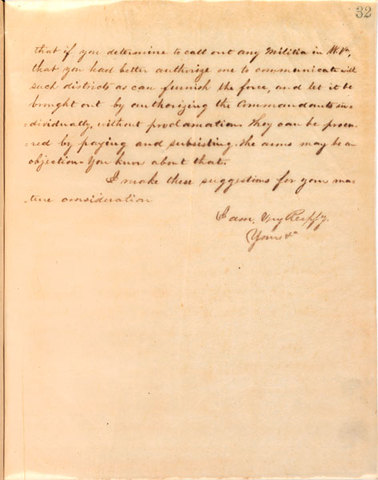 32
that if you determine to call out any Militia in W.Va,
that you had better authorize me to communicate with
such districts as can furnish the force, and let it be
brought out by authorizing the Commandants in-
dividually, without proclamation. They can be procu-
red by paying and subsisting. The arms may be an
objection. You know about that.
I make these suggestions for your ma-
ture consideration
I am, Very Respfy.
Yours &c